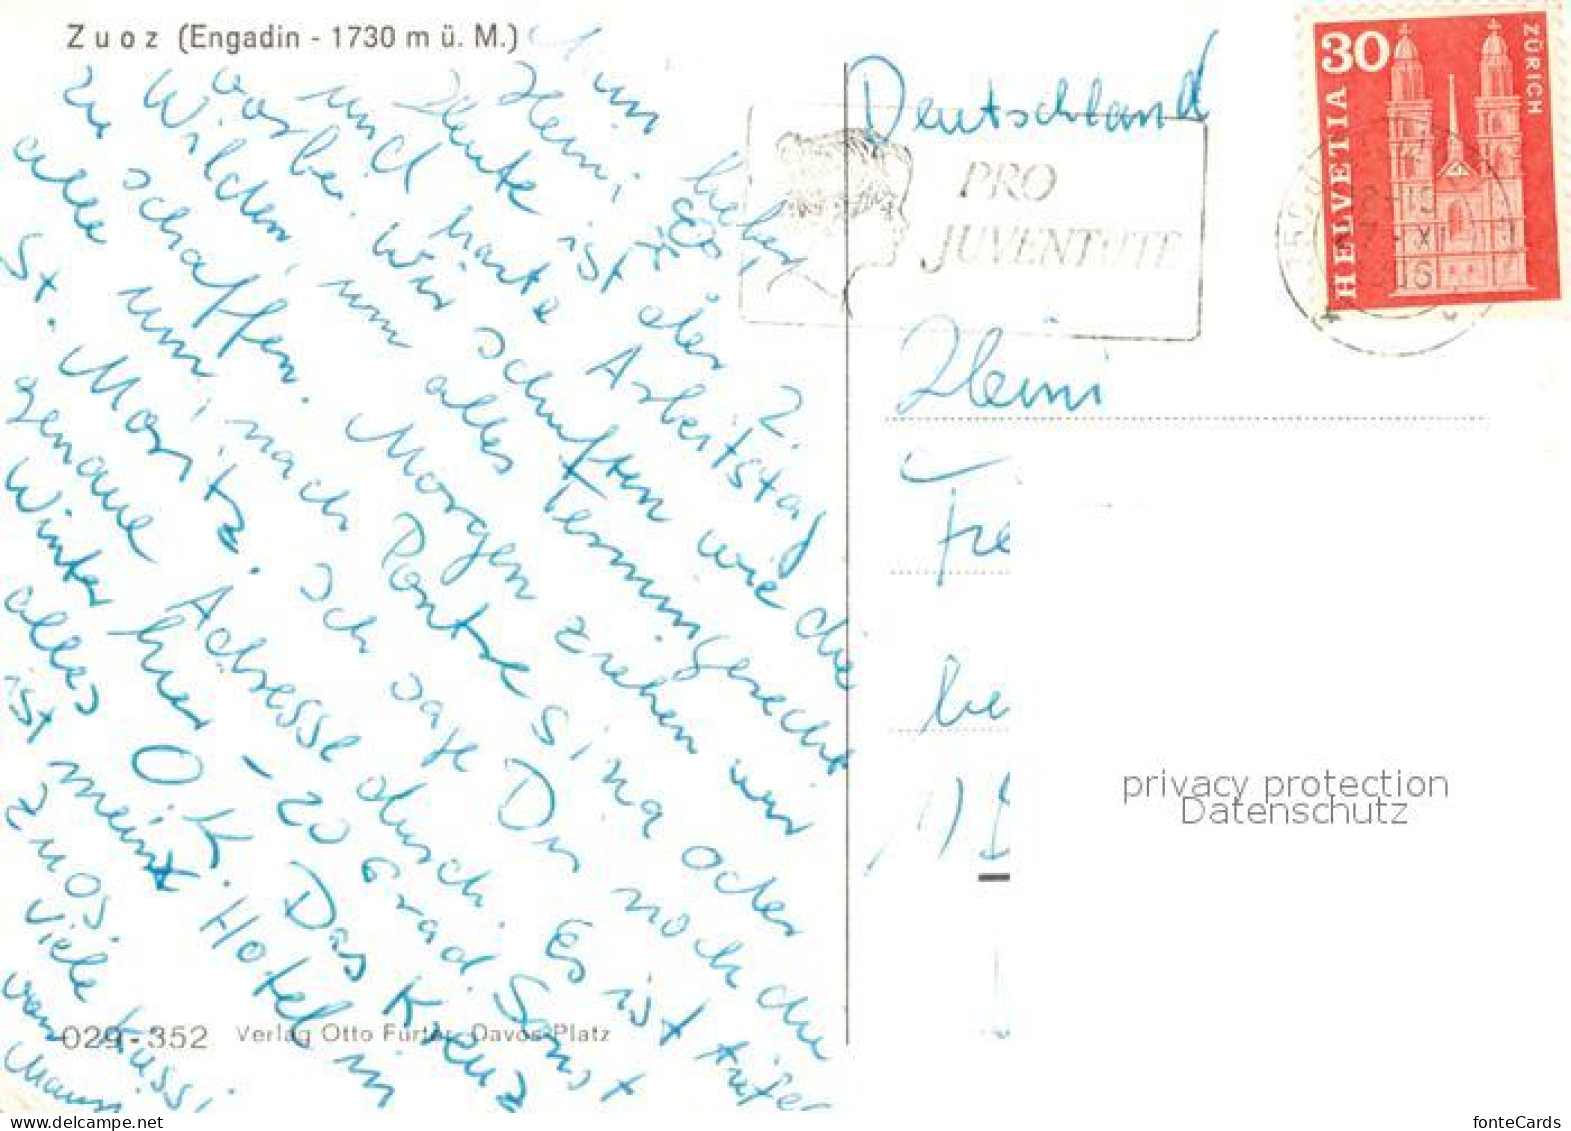 Zuoz (Engadin - 1730 m ü. M.)
lieber
Heini,
Heute ist der 2.
und harte Arbeitstag
vorbei. Wir schuften wie die
Wilden, um alles termingerecht
zu schaffen. Morgen ziehen wir
alle um, nach Pontresina oder
St. Moritz. Ich sage Dir noch die
genaue Adresse durch. Es ist tiefer
Winter hier - 20 Grad. Sonst
alles O.K. Das Kreuz
ist mein Hotel in
Zuoz.
Viele Küssi
von
029-352 Verlag Otto Furter, Davos-Platz
Deutschland
PRO
JUVENTUTE
30
HELVETIA
ZÜRICH
Heini
Fre
be
privacy protection
Datenschutz
fonteCards